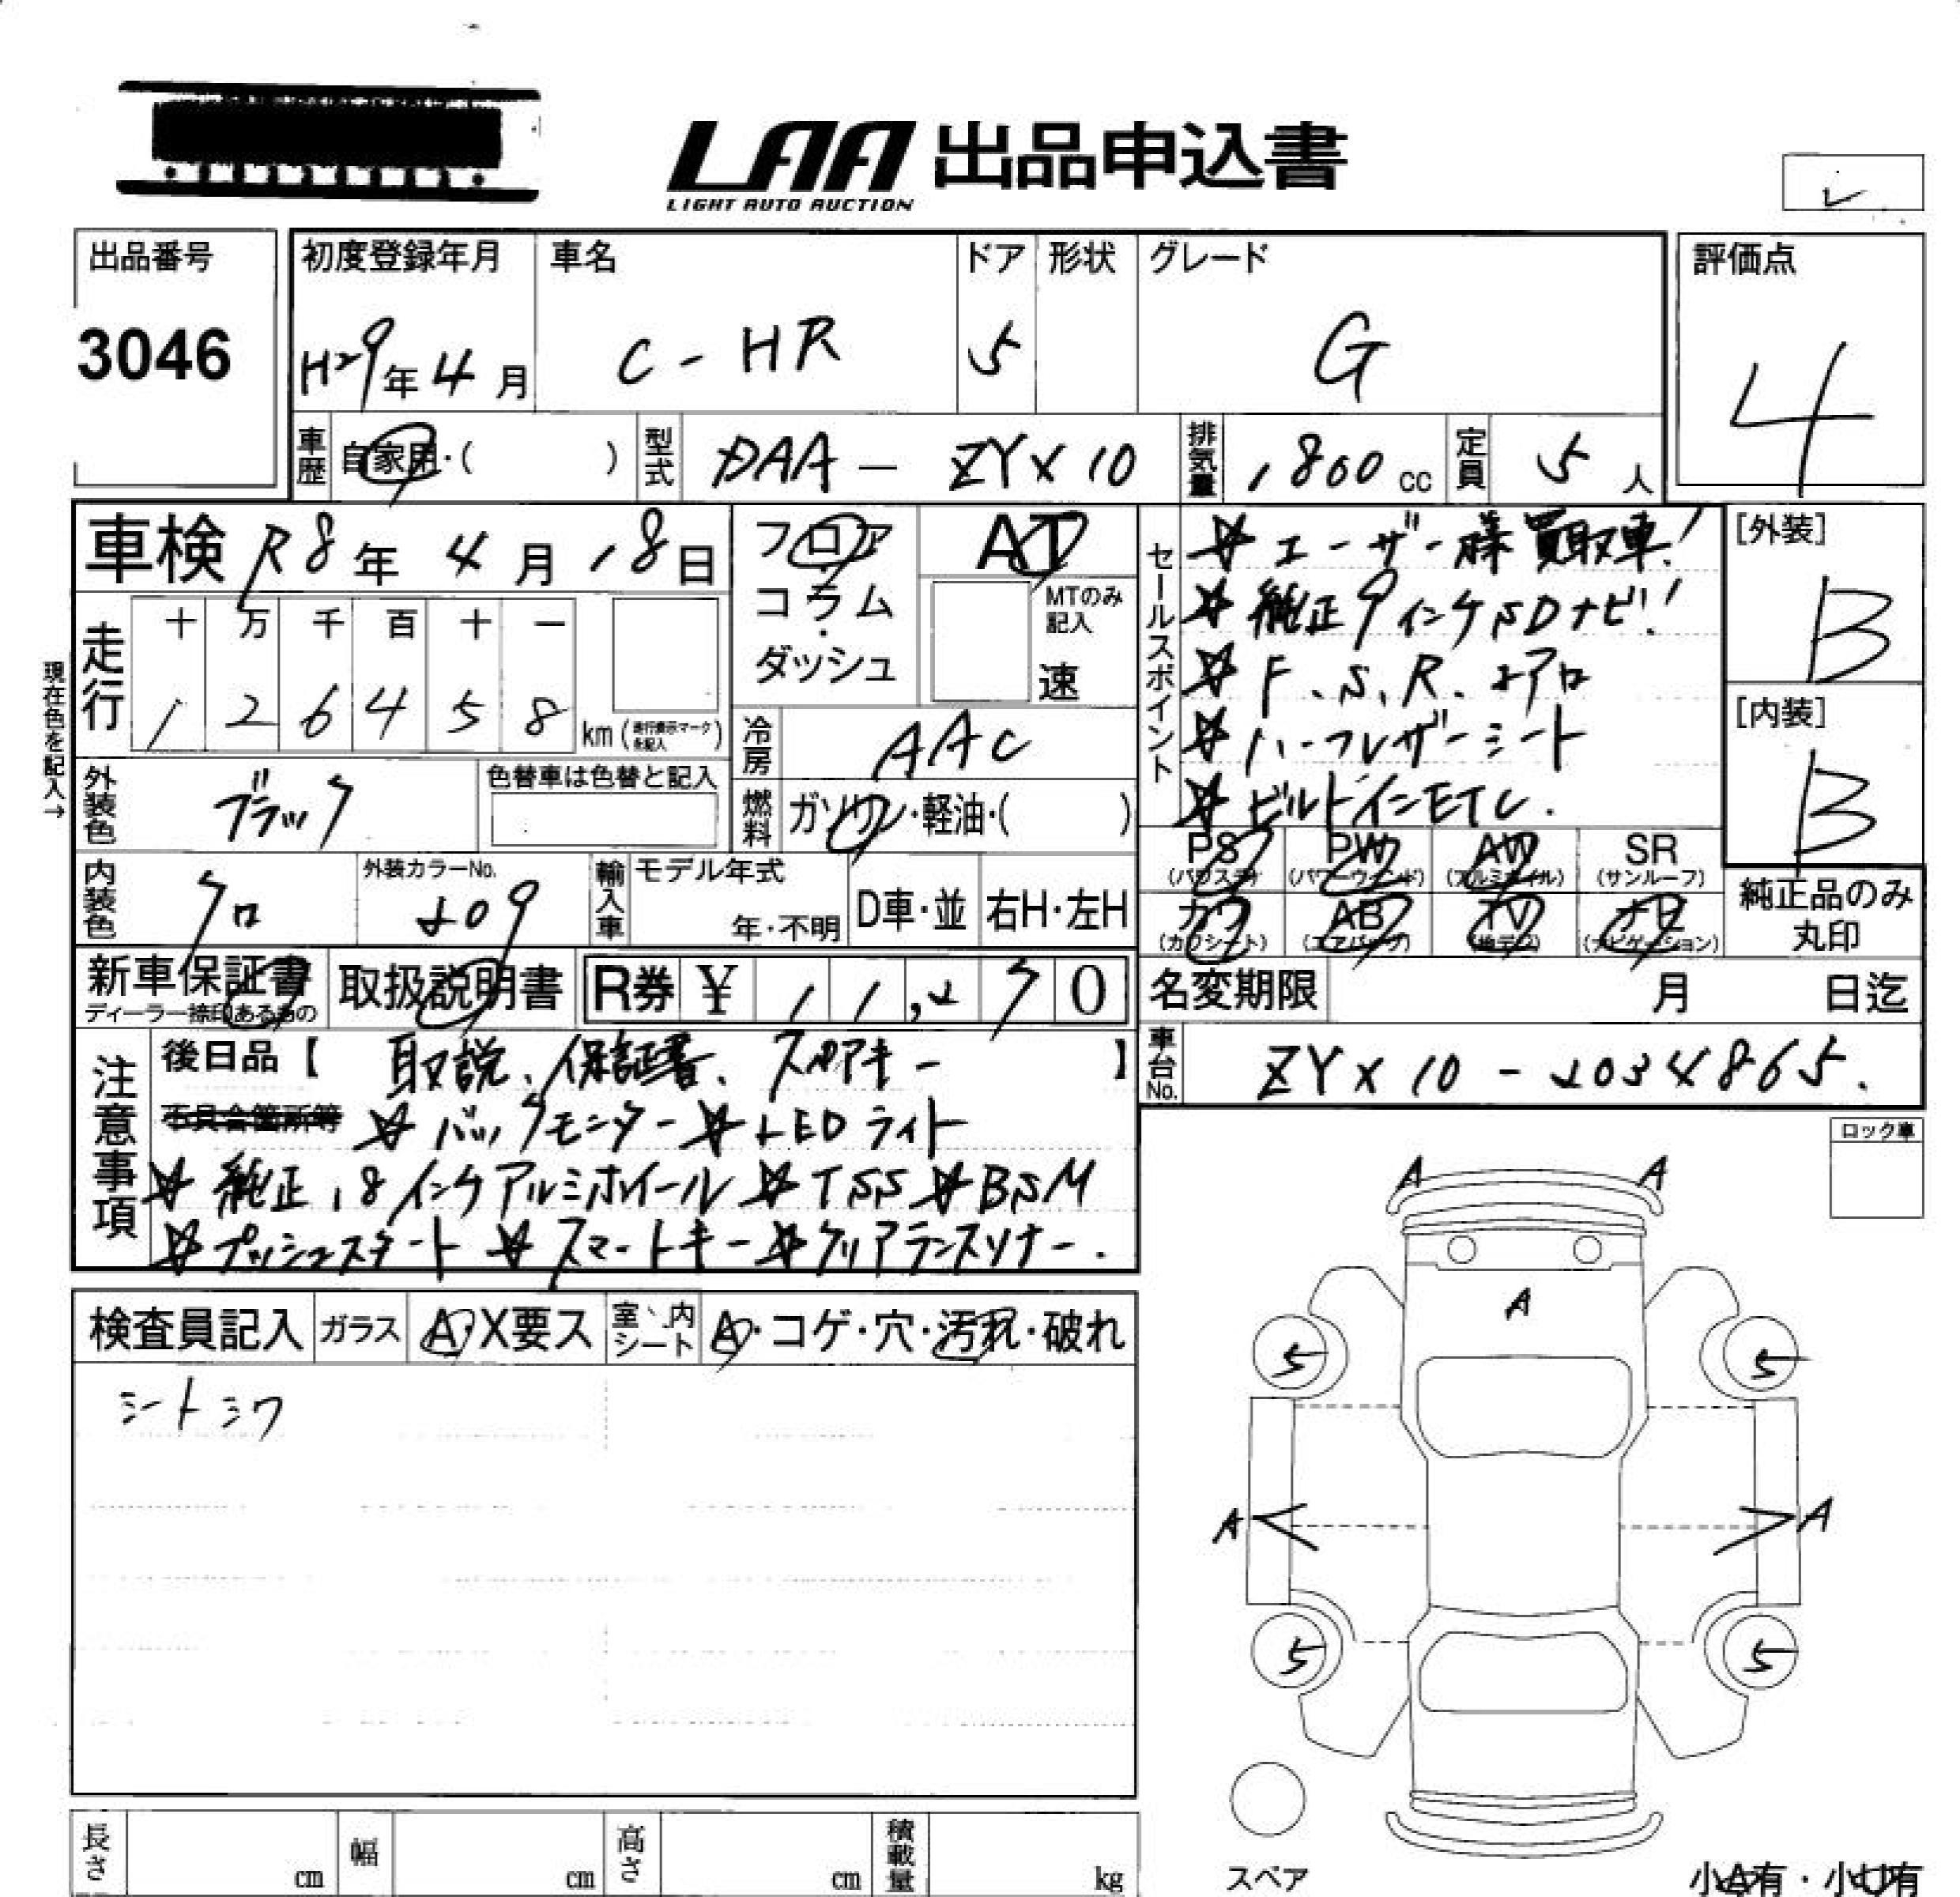 LAA 出品申込書
LIGHT AUTO AUCTION
レ
出品番号
3046
初度登録年月
H29年4月
車名
C-HR
ドア
5
形状
グレード
G
評価点
4
車歴
自家用・( )
型式
DAA-ZYX10
排気量
1800 cc
定員
5人
車検 R8年4月18日
フロア・コラム・ダッシュ
AT
MTのみ記入
速
現在色を記入→
走行
十 万 千 百 十 一
1 2 6 4 5 8 km (走行表示マークを記入)
冷房
AAC
外装色
ブラック
色替車は色替と記入
燃料
ガソリン・軽油・( )
内装色
クロ
外装カラーNo.
209
輸入車
モデル年式
年・不明
D車・並
右H・左H
セールスポイント
☆ユーザー様買取車!
☆純正9インチSDナビ!
☆F、S、R、エアロ
☆ハーフレザーシート
☆ビルドインETC.
[外装]
B
[内装]
B
PS (パワステ) PW (パワーウィンド) AW (アルミホイル) SR (サンルーフ)
カワ (カワシート) AB (エアバッグ) TV (地デジ) ナビ (ナビゲーション)
純正品のみ
丸印
新車保証書
ディーラー捺印あるもの
取扱説明書
R券 ¥ 11,270
名変期限 月 日迄
車台No.
ZYX10-2034865.
注意事項
後日品【 取説、保証書、スペアキー 】
不具合箇所等 ☆バックモニター☆LEDライト
☆純正18インチアルミホイール☆TSS☆BSM
☆プッシュスタート ☆スマートキー☆クリアランスソナー.
ロック車
検査員記入
ガラス
A・X要ス
室内、シート
A・コゲ・穴・汚れ・破れ
シートシワ
A A
A
5 5
A A
5 5
スペア
小A有・小U有
長さ cm
幅 cm
高さ cm
積載量 kg